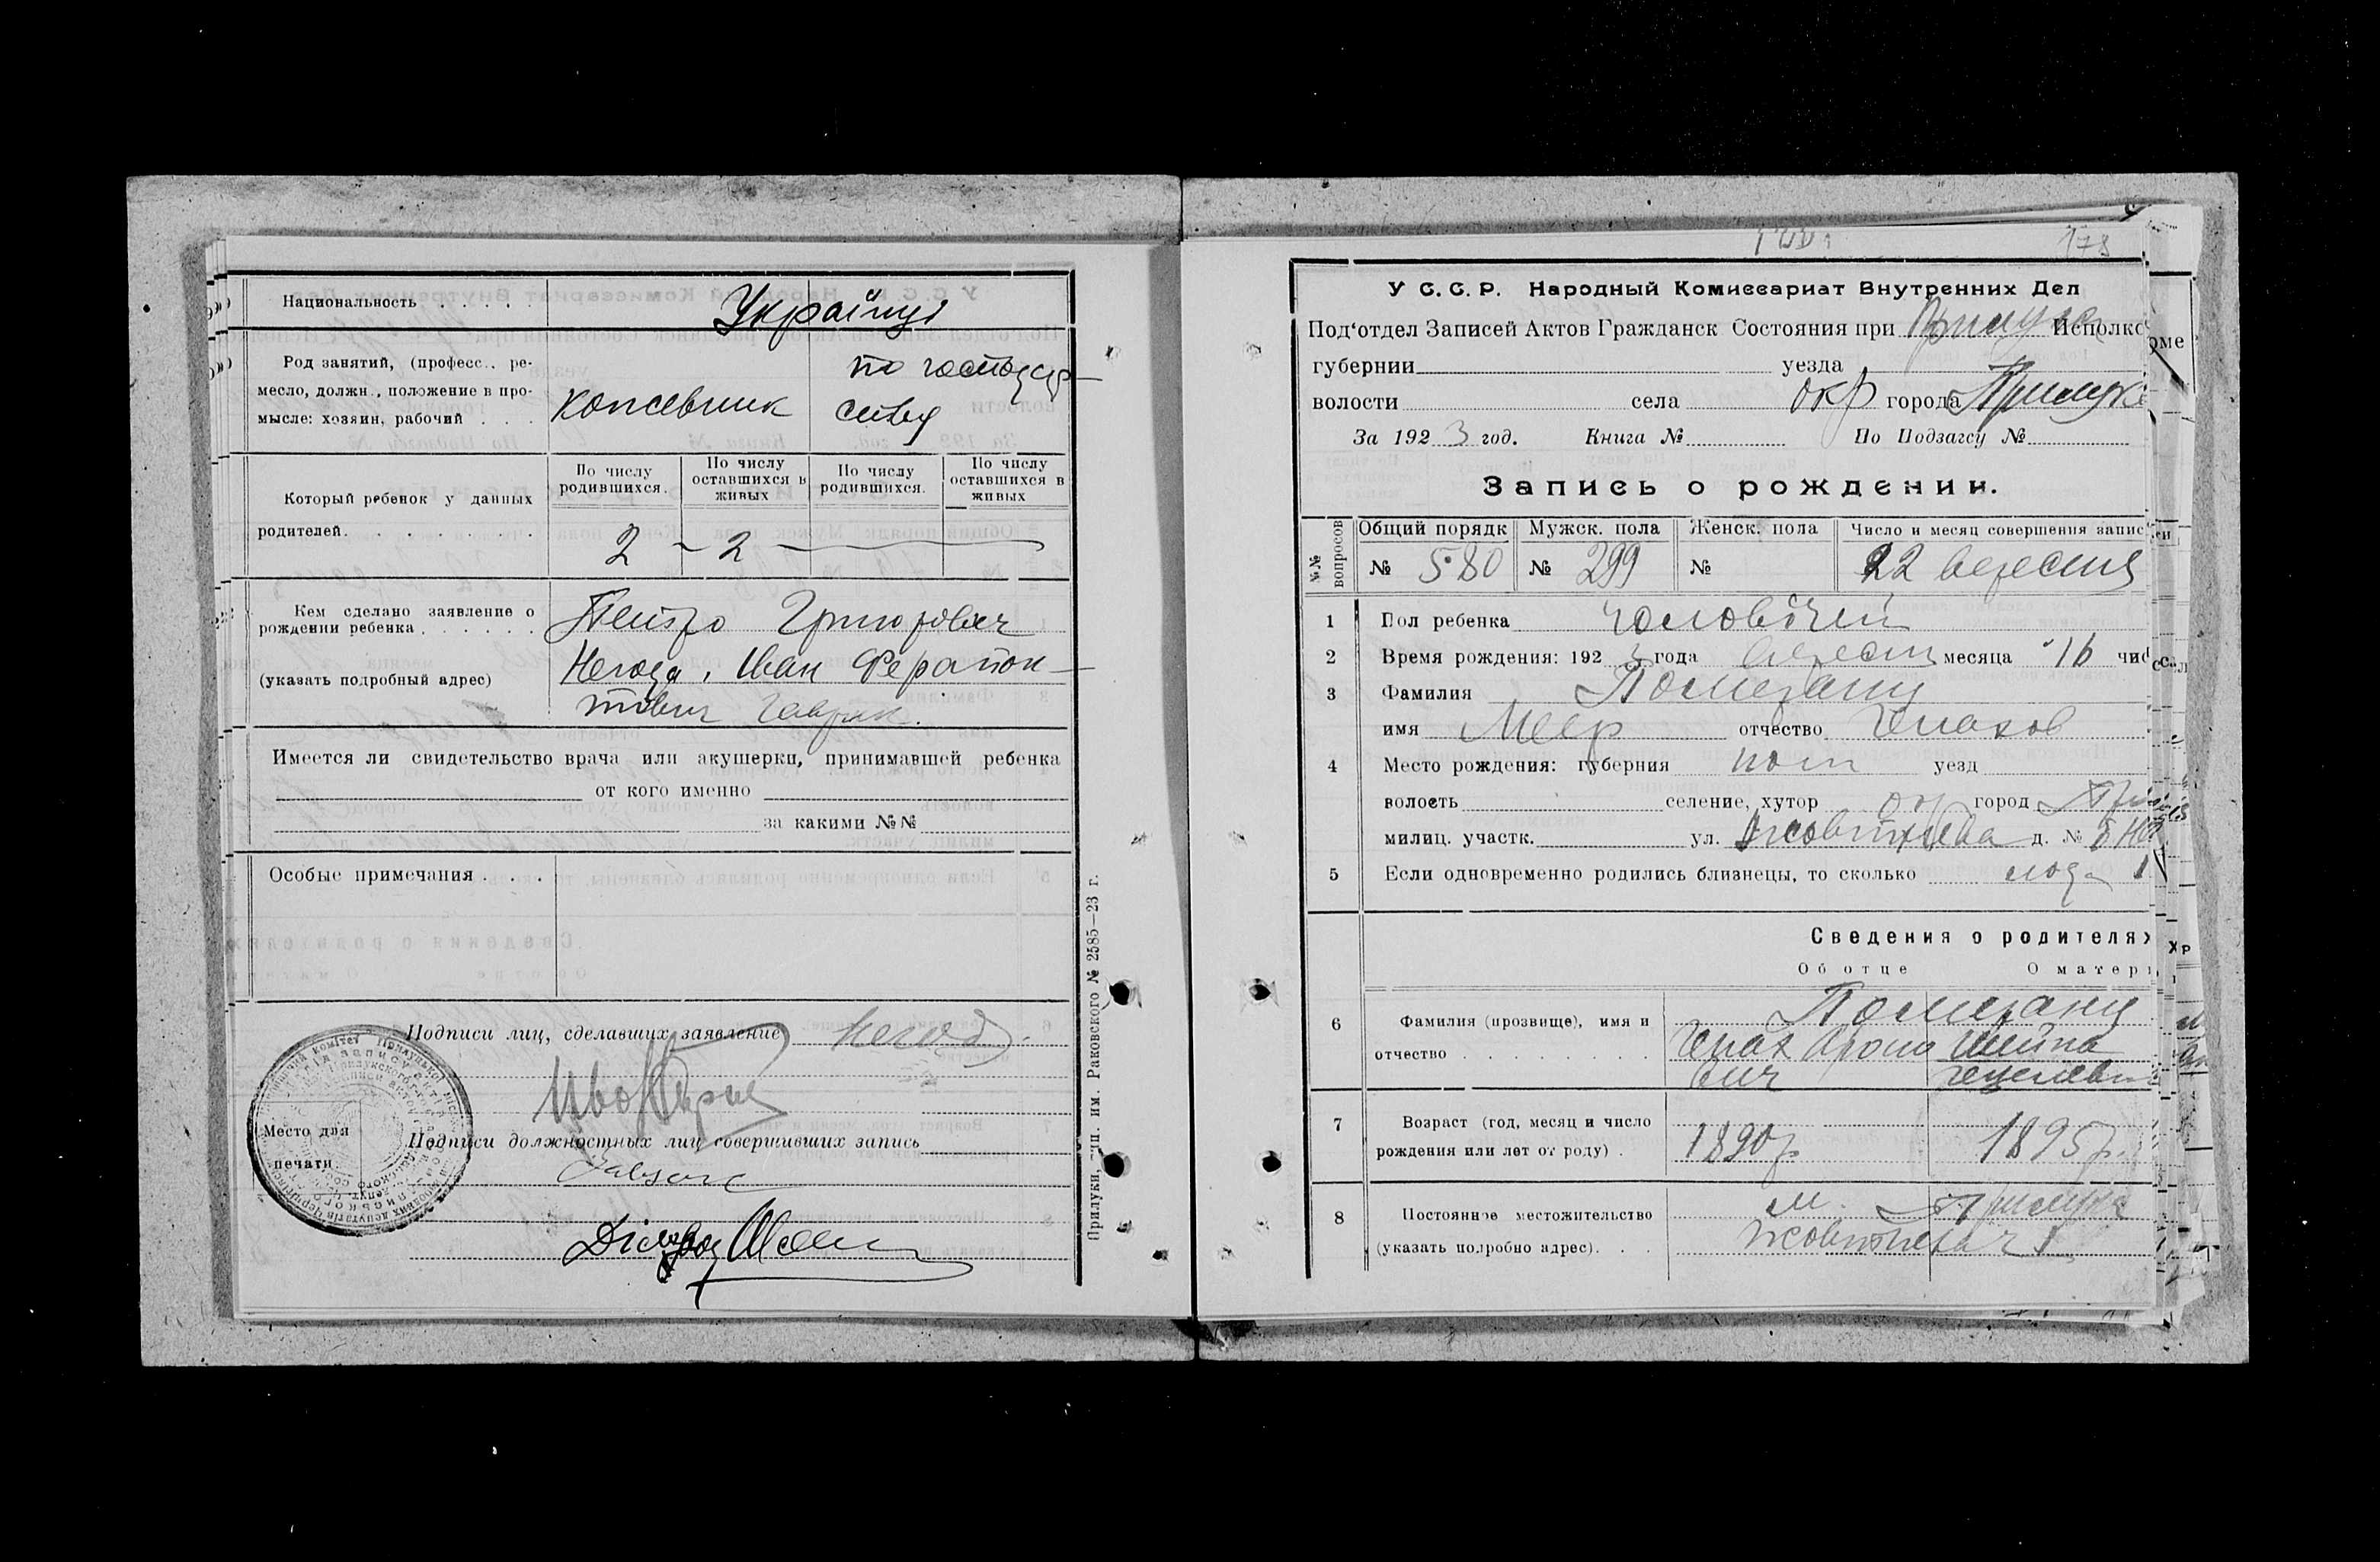 Национальность . . . . .
Українці
Род занятий, (професс., ре-
месло, должн., положение в про-
мысле: хозяин, рабочий . . .
кожевник
по господар-
ству
Который ребенок у данных
родителей. . . . . . . .
По числу родившихся.
По числу оставшихся в живых
По числу родившихся.
По числу оставшихся в живых
2 – 2
Кем сделано заявление о
рождении ребенка . . . . . .
(указать подробный адрес)
Петро Григорович
Негода, Иван Ферапон-
тович Гаврик.
Имеется ли свидетельство врача или акушерки, принимавшей ребенка
от кого именно
за какими №№
Особые примечания . . .
Подписи лиц, сделавших заявление Негода.
Подписи должностных лиц совершивших запись
Место для
печати.
Прилуки, тип. им. Раковского № 2585—23 г.
178
У С.С.Р. Народный Комиссариат Внутренних Дел
Под'отдел Записей Актов Гражданск Состояния при Прилуцк Исполко
губернии уезда
волости села окр города Прилуки
За 192 3 год. Книга № По Подзагсу №
Запись о рождении.
№№ вопросов
Общий порядк
Мужск. пола
Женск. пола
Число и месяц совершения записи
№ 580
№ 299
№
22 вересня
1 Пол ребенка чоловічий
2 Время рождения: 192 3 года вересня месяца 16 чис
3 Фамилия Померанц
имя Меер отчество Генахов
4 Место рождения: губерния пол уезд
волость селение, хутор окр город Прилуки
милиц. участк. ул. Жовтнева д. №
5 Если одновременно родились близнецы, то сколько
Сведения о родителях
Об отце
О матери
6 Фамилия (прозвище), имя и
отчество . . . . . . . .
Померанц
Генах Ароно
вич
Шейна
7 Возраст (год, месяц и число
рождения или лет от роду) .
1890 р
1895 р.
8 Постоянное местожительство
(указать подробно адрес). . .
м. Прилуки
Жовтнева ч 1